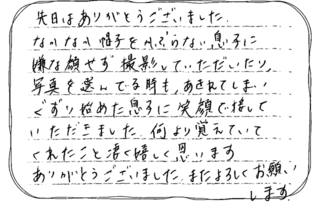 先日はありがとうございました.
なかなか帽子をかぶらない息子に
嫌な顔せず撮影していただいたり,
写真を選んでる時も,あきれてしまい
ぐずり始めた息子に笑顔で接して
いただきました.何より覚えていて
くれたこと凄く嬉しく思います
ありがとうございました.またよろしくお願い
します.